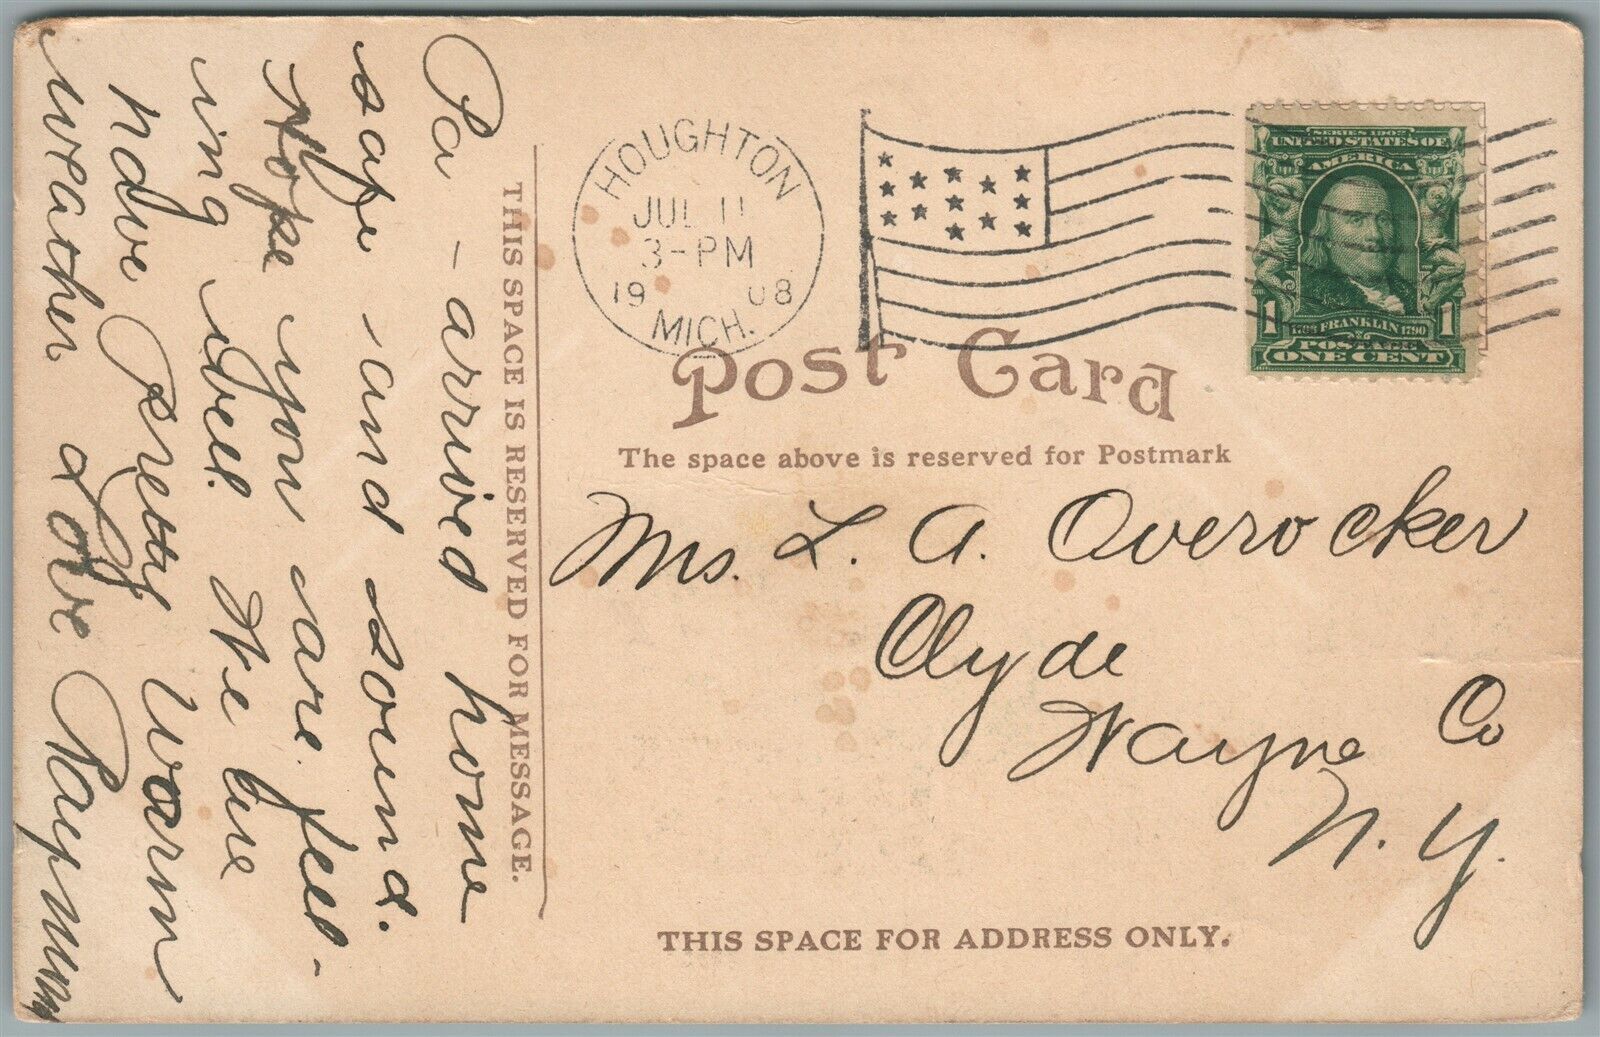 Pa - arrived home
safe and sound.
Hope you are feel-
ing well. We are
have pretty warm
weather. Love
THIS SPACE IS RESERVED FOR MESSAGE.
HOUGHTON
JUL 11
3-PM
1908
MICH.
SERIES 1902
UNITED STATES OF
AMERICA
1 1706 FRANKLIN 1790 1
POSTAGE
ONE CENT
Post Card
The space above is reserved for Postmark
Mrs. L. A. Overocker
Clyde
Wayne Co
N. Y.
THIS SPACE FOR ADDRESS ONLY.